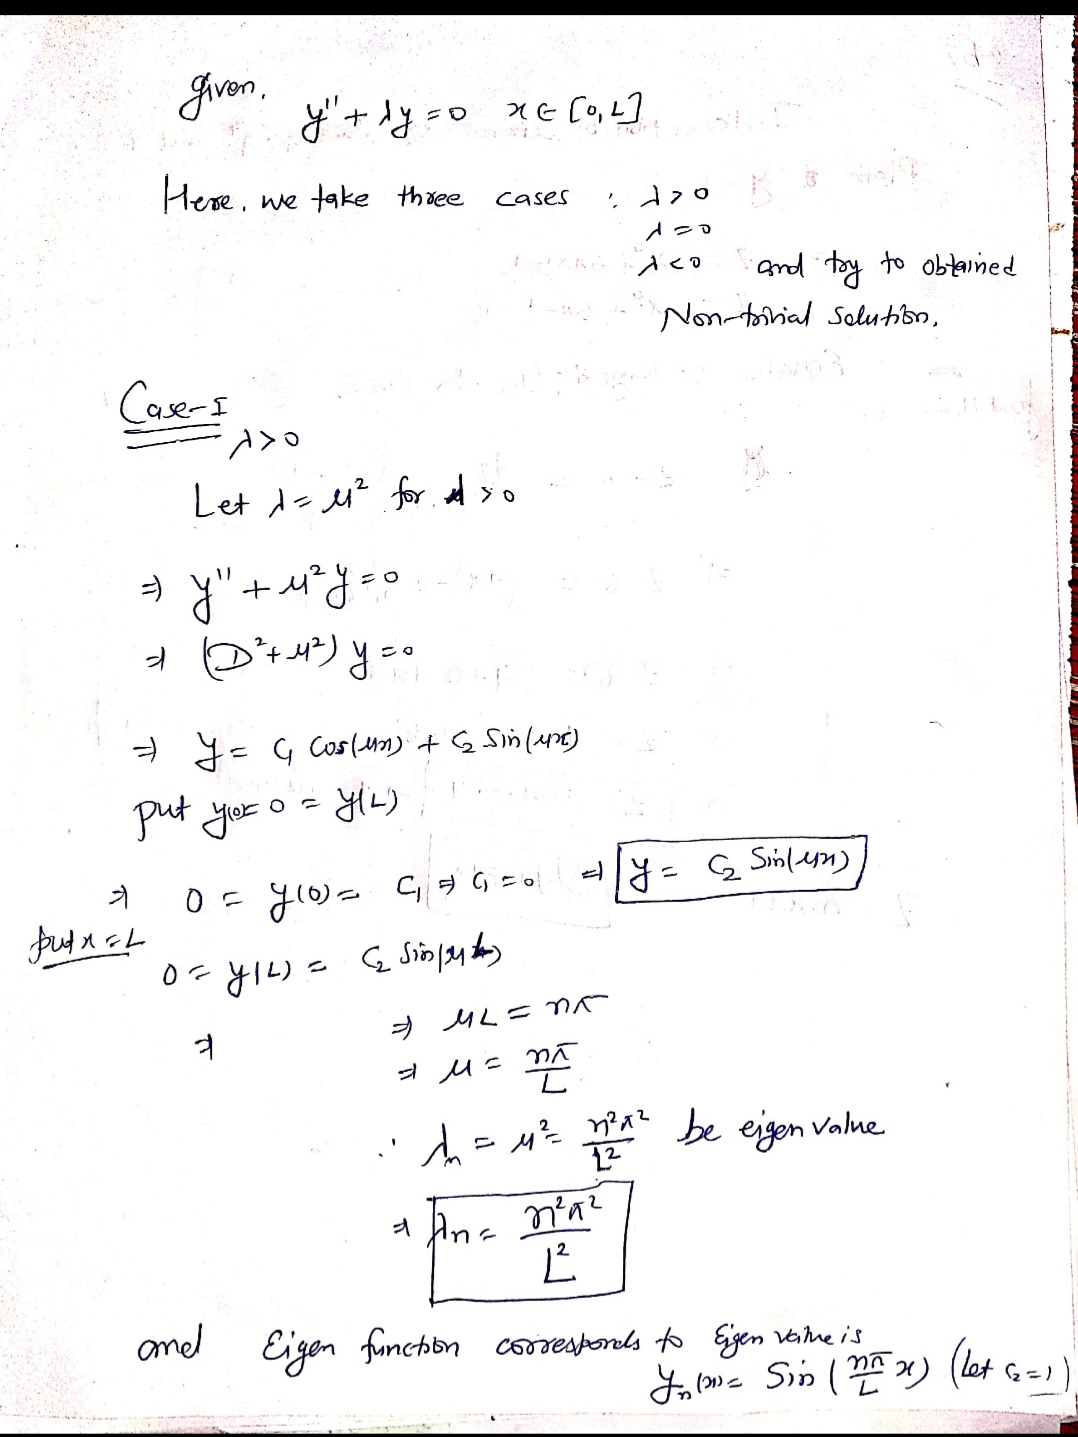 given,
y'' + λy = 0   x ∈ [0, L]
Here, we take three cases : λ > 0
λ = 0
λ < 0 and try to obtained
Non-trivial solution.
Case-I
λ > 0
Let λ = μ² for > 0
⇒ y'' + μ²y = 0
⇒ (D² + μ²) y = 0
⇒ y = C₁ Cos(μx) + C₂ Sin(μx)
put y(0) = 0 = y(L)
⇒ 0 = y(0) = C₁ ⇒ C₁ = 0 ⇒ y = C₂ Sin(μx)
put x = L
0 = y(L) = C₂ Sin(μL)
⇒ ⇒ μL = nπ
⇒ μ = nπ/L
∴ λₙ = μ² = n²π²/L² be eigen value
⇒ λn = n²π²/L²
and Eigen function corresponds to Eigen value is
yₙ(x) = Sin (nπ/L x) (Let C₂ = 1)